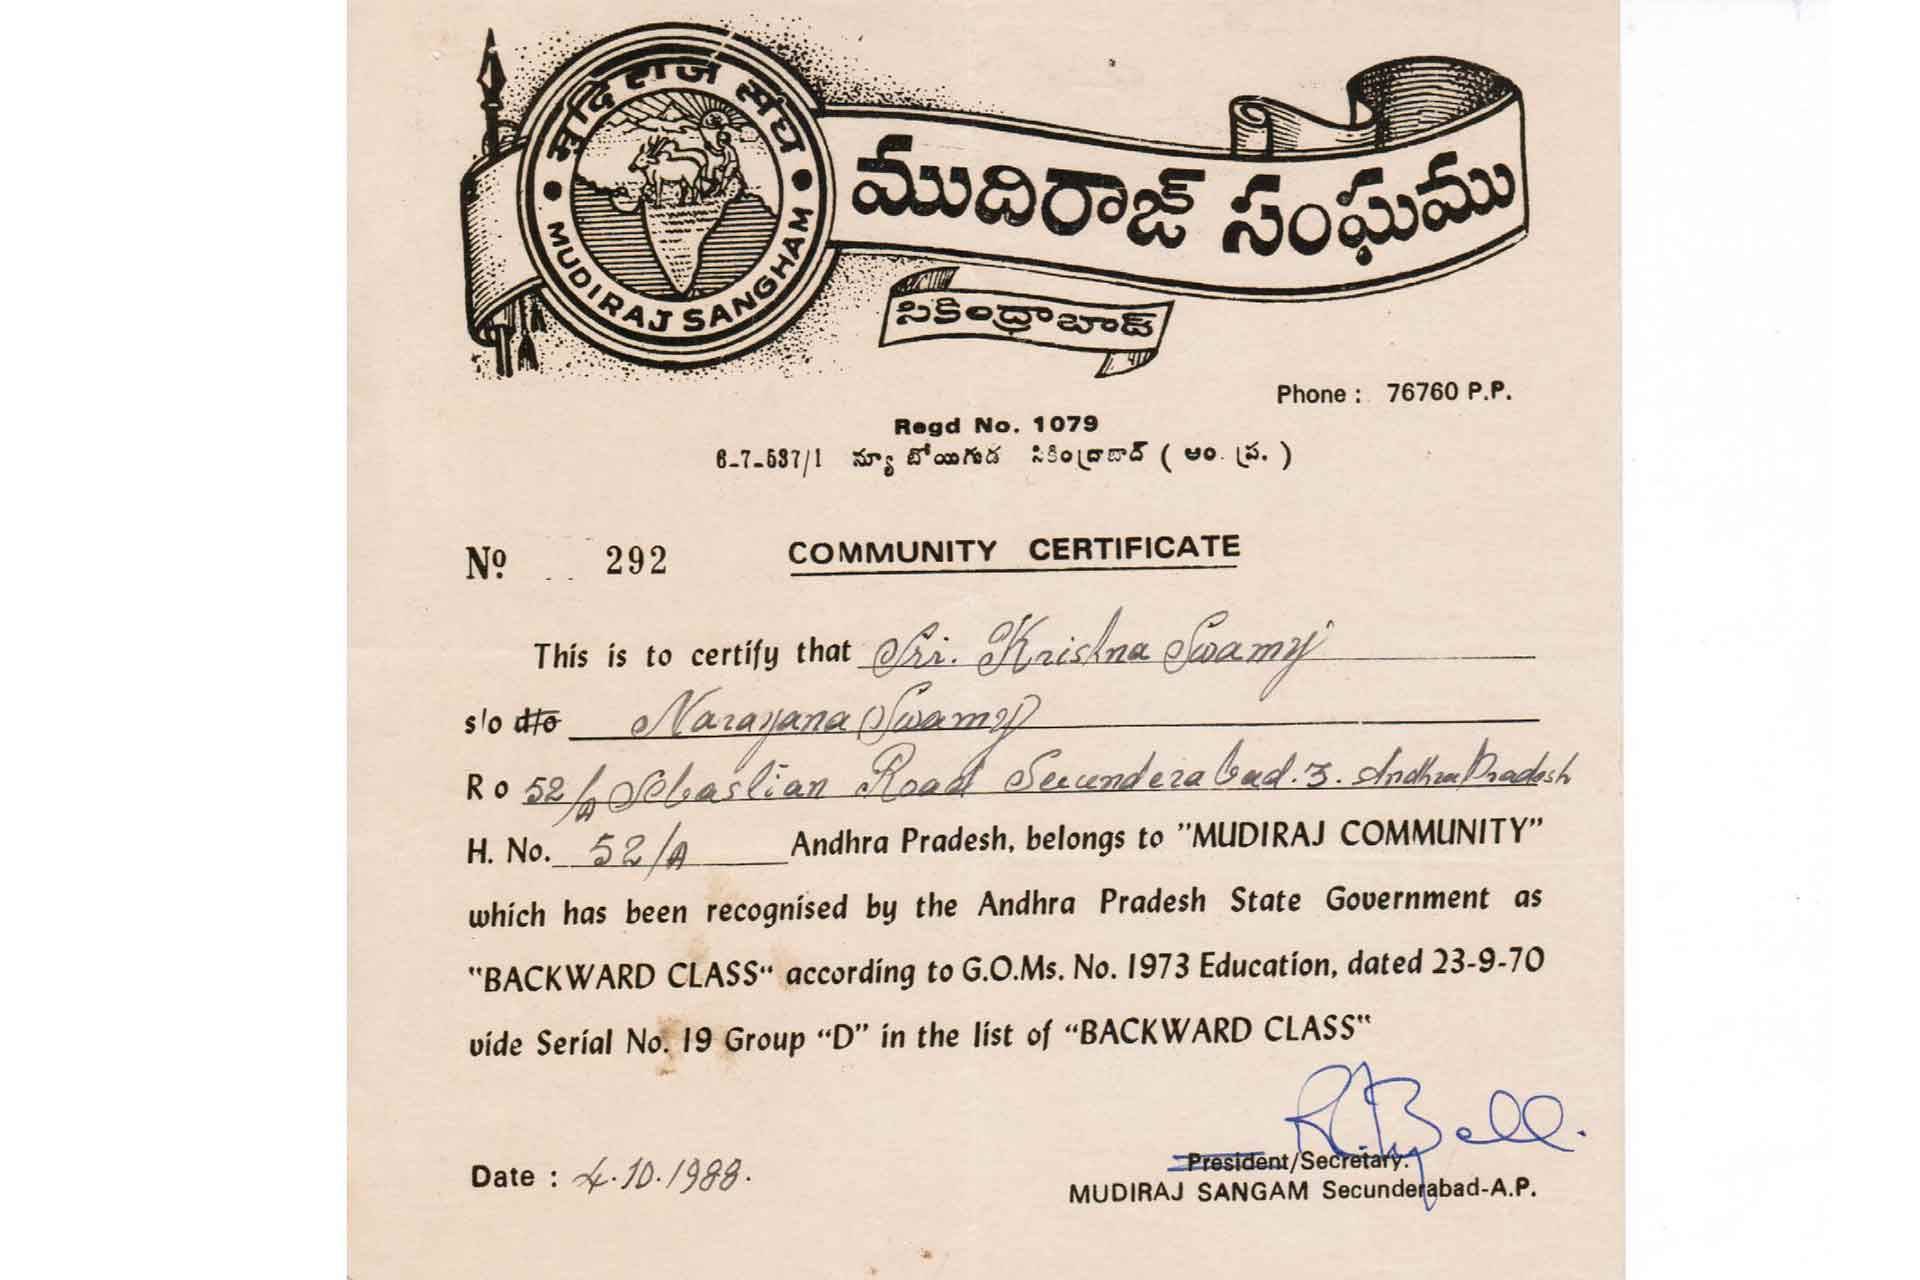 मुदिराज संघ
MUDIRAJ SANGHAM
ముదిరాజ్ సంఘము
సికింద్రాబాద్
Phone : 76760 P.P.
Regd No. 1079
6-7-537/1 న్యూ బోయిగుడ సికింద్రాబాద్ ( ఆం. ప్ర. )
Nº 292 COMMUNITY CERTIFICATE
This is to certify that Sri. Krishna Swamy
s/o d/o Narayana Swamy
R o 52/A Sebastian Road Secunderabad.3. Andhra Pradesh
H. No. 52/A Andhra Pradesh, belongs to "MUDIRAJ COMMUNITY"
which has been recognised by the Andhra Pradesh State Government as
"BACKWARD CLASS" according to G.O.Ms. No. 1973 Education, dated 23-9-70
vide Serial No. 19 Group "D" in the list of "BACKWARD CLASS"
Date : 4.10.1988.
President/Secretary.
MUDIRAJ SANGAM Secunderabad-A.P.